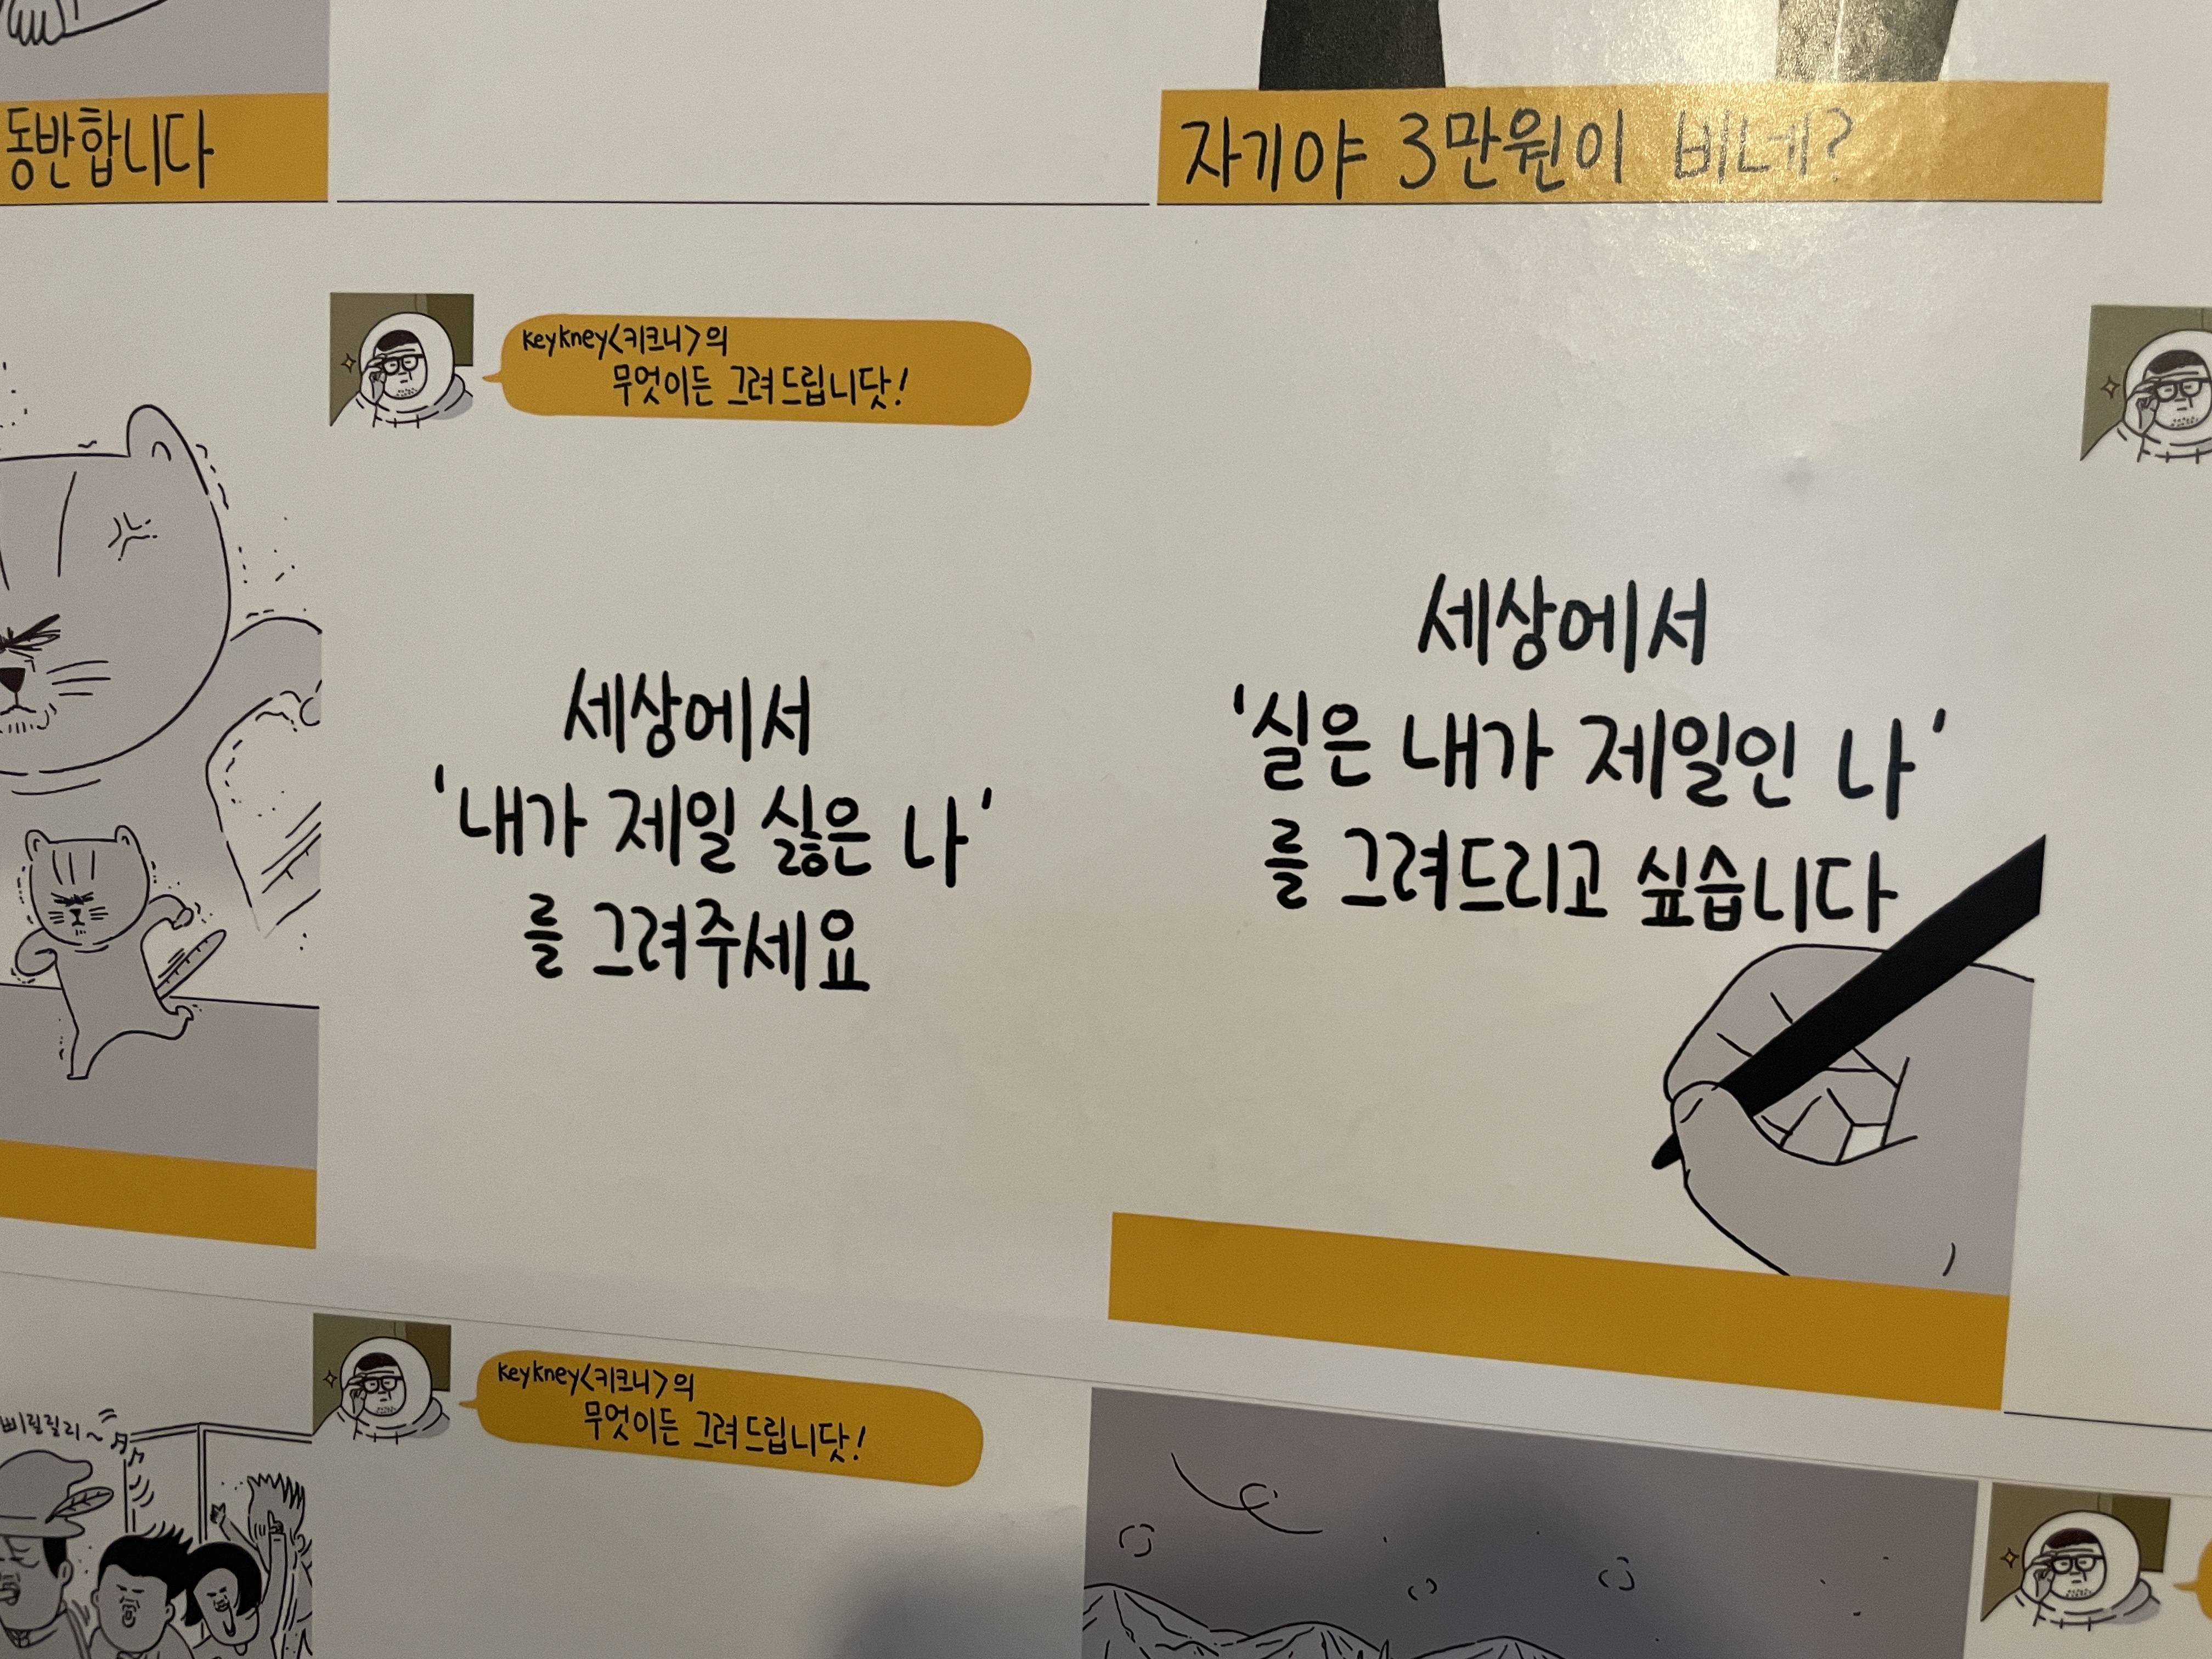 동반합니다
자기야 3만원이 비네?
keykney<키크니>의
무엇이든 그려드립니닷!
세상에서
'내가 제일 싫은 나'
를 그려주세요
세상에서
'실은 내가 제일인 나'
를 그려드리고 싶습니다
삐릴릴리~
keykney<키크니>의
무엇이든 그려드립니닷!